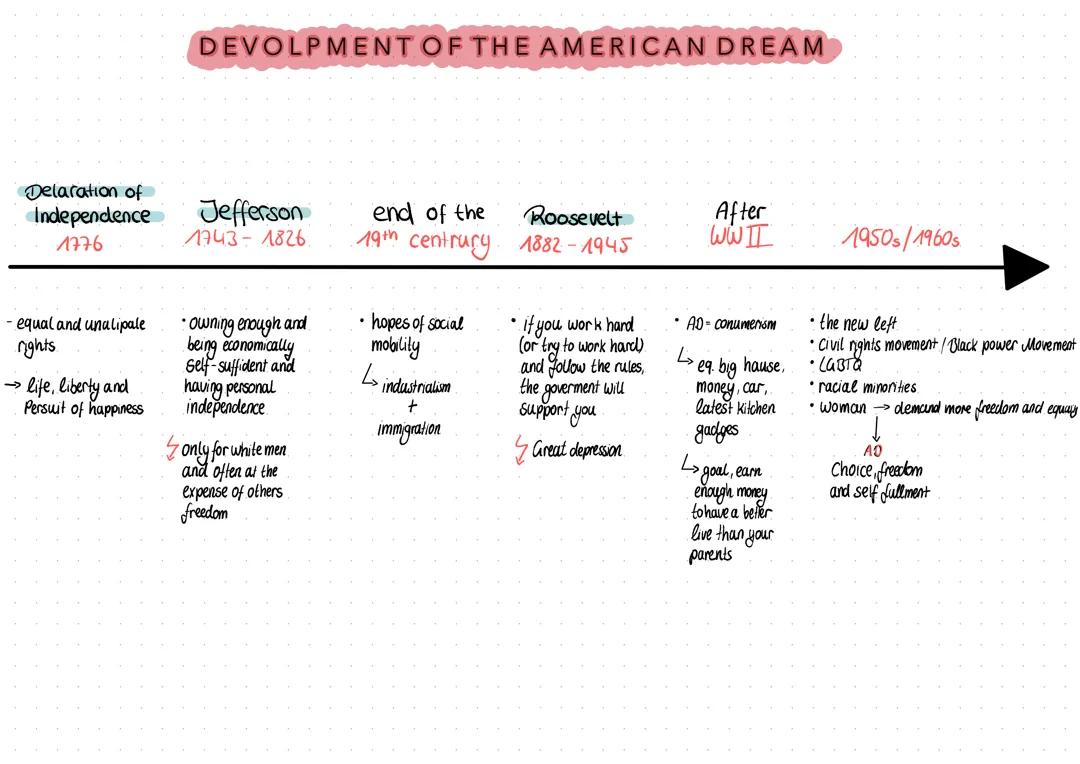 DEVOLPMENT OF THE AMERICAN DREAM
Delaration of
Independence
1776
- equal and unalipale
rights
→ life, liberty and
Persuit of happiness
Jefferson
1743 - 1826
• owning enough and
being economically
self-suffident and
having personal
independence
only for white men
and often at the
expense of others
freedom
end of the
19th centrury
• hopes of social
mobility
industrialism
+
immigration
Roosevelt
1882 - 1945
• if you work hard
(or try to work hard)
and follow the rules,
the goverment will
support you
Great depression
After
WW II
• AD = conumerism
eg. big hause,
money, car,
latest kitchen
gadges
goal, earn
enough money
to have a better
live than your
parents
1950s/1960s
• the new left
• civil rights movement / Black power Movement
• LGBTQ
• racial minorities
• woman → demand more freedom and equaly
AD
Choice, freedom
and self fullment